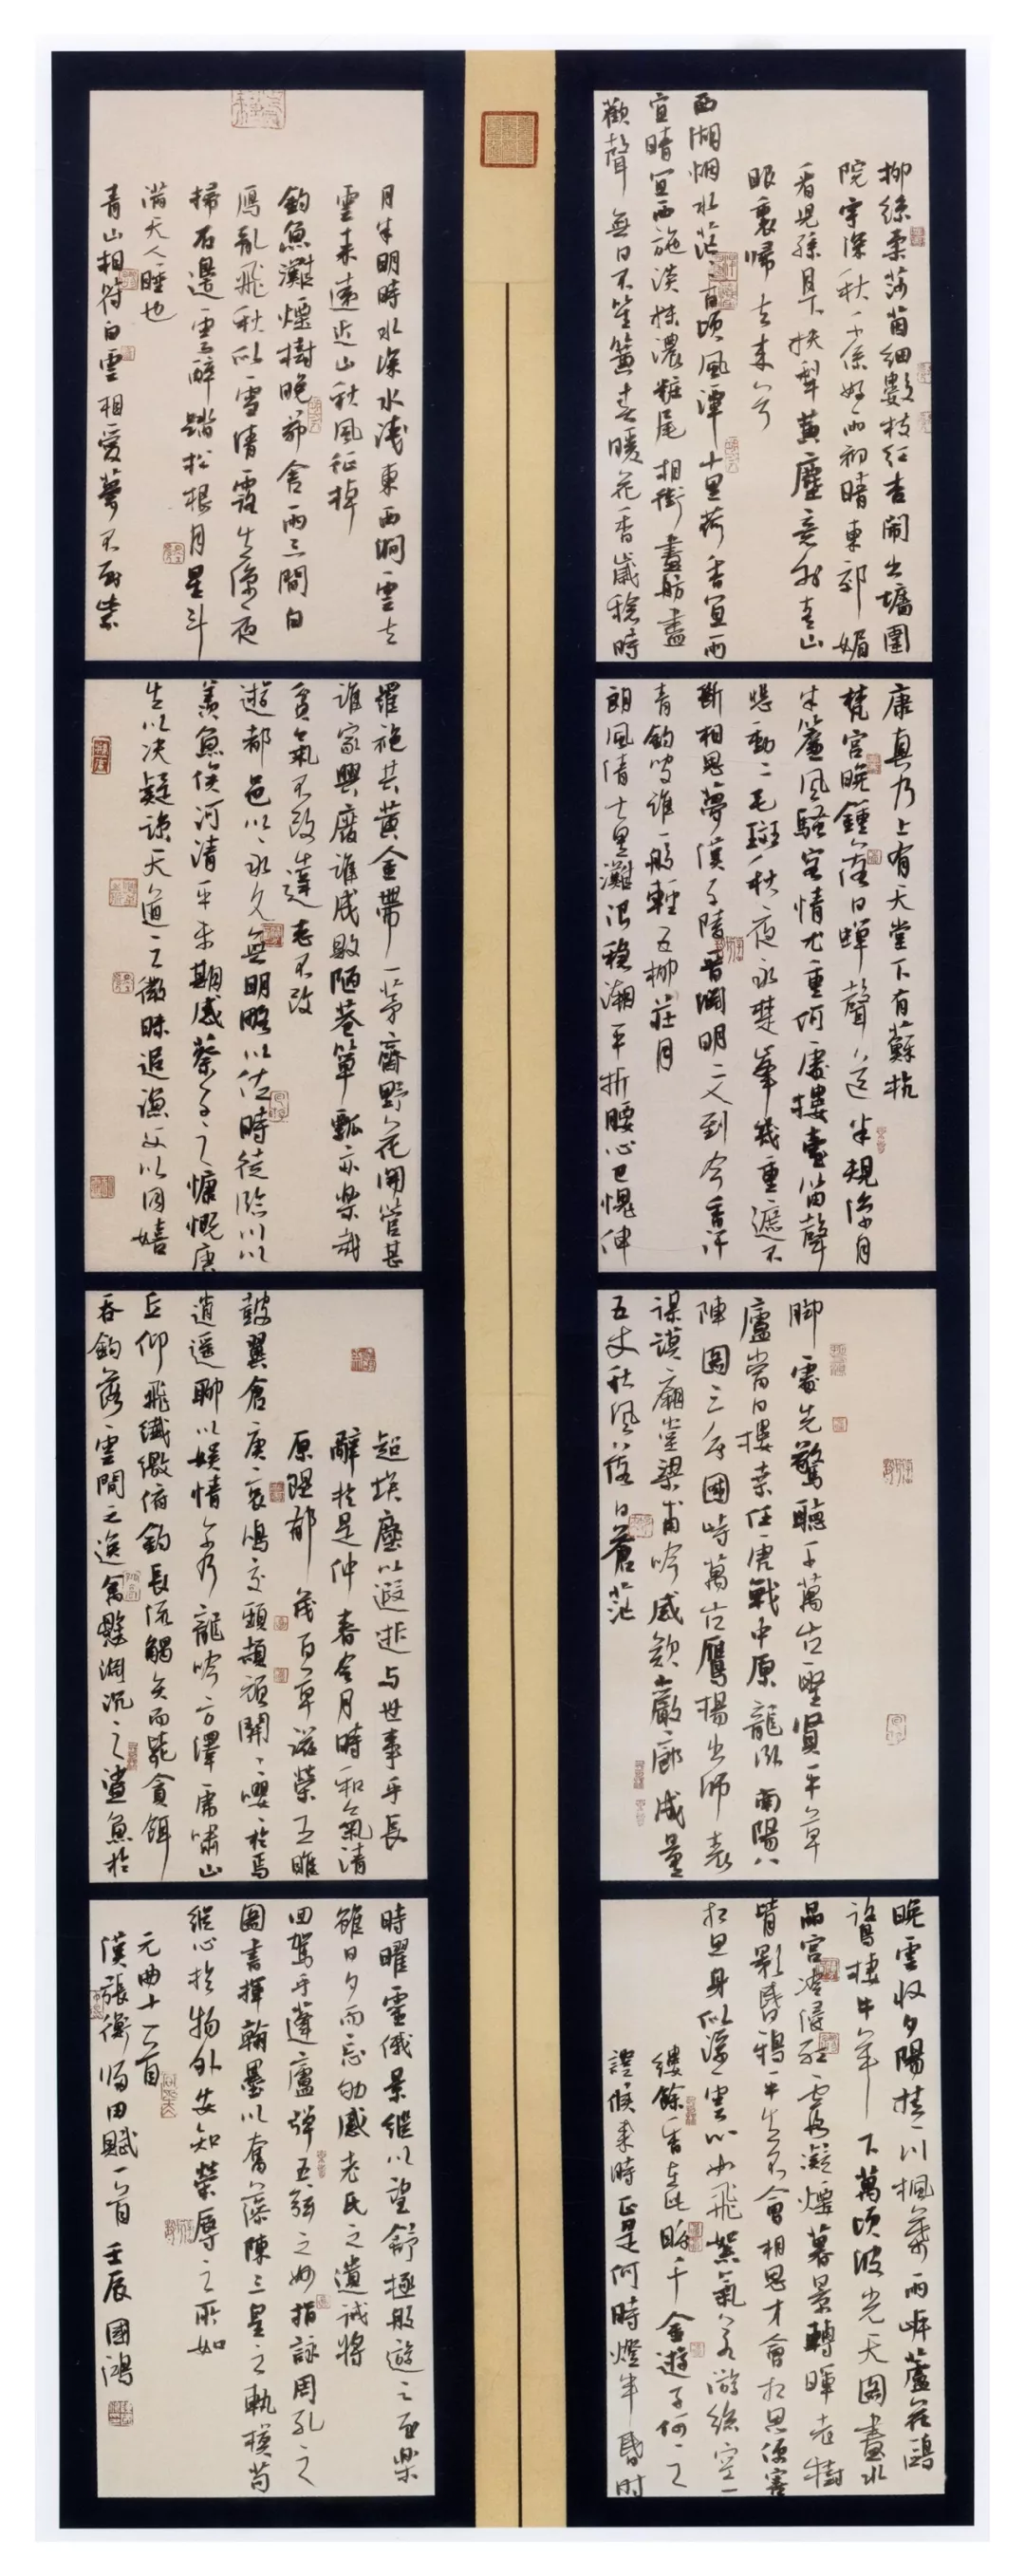 柳絲柔莎茵細數枝紅杏鬧出墻圍
院宇深秋千係好雨初晴東郊媚
看兒孫月下扶犁黃塵意外青山
眼裏歸去來兮
西湖烟水茫〻百頃風潭十里荷香宜雨
宜晴宜西施淡抹濃粧尾相銜畫舫盡
歡聲無日不笙簧春暖花香歲稔時
康真乃上有天堂下有蘇杭
梵宮晚鐘落日蟬聲送半規涼月
半簾風騷客情尤重何處樓臺笛聲
悲動二毛斑秋夜永楚峯幾重遮不
斷相思夢漢子陵晉淵明二人到今香汗
青釣叟誰一般輕五柳莊月
朗風清七里灘浪穩潮平折腰心已愧伸
脚處先驚聽千萬古聖賢平草
廬當日樓桑任虎戰中原龍臥南陽八
陣圖三分國峙萬古鷹揚出師表
謀謨廟堂梁甫吟感歎巖廊成量
五丈秋風落日蒼茫
晚雲收夕陽掛一川楓葉兩岸蘆花鷗
鷺棲牛羊下萬頃波光天圖畫水
晶宮冷浸紅霞凝煙暮景轉暉老樹
背影昏鴉平生不會相思才會相思便害
相思身似浮雲心如飛絮氣若游絲空一
縷餘香在此盼千金遊子何之
證候來時正是何時燈半昏時
月半明時水深水淺東西澗雲去
雲來遠近山秋風征棹
釣魚灘煙樹晚茆舍兩三間白
鴈亂飛秋似雪清露生涼夜
掃石邊雲醉踏松根月星斗
滿天人睡也
青山相待白雲相愛夢不到紫
羅袍共黃金帶一茅齋野花開管甚
誰家興廢誰成敗陋巷簞瓢亦樂哉
貧氣不改達志不改
遊都邑以永久無明略以佐時徒臨川以
羨魚俟河清乎未期感蔡子之慷慨唐
生以決疑諒天道之微昧追漁父以同嬉
超埃塵以遐逝与世事乎長
辭於是仲春令月時和氣清
原隰郁茂百草滋榮王雎
鼓翼倉庚哀鳴交頸頡頏關〻嚶〻於焉
逍遙聊以娛情尔乃龍吟方澤虎嘯山
丘仰飛纖繳俯釣長流觸矢而斃貪餌
吞鉤落雲間之逸禽懸淵沉之鯊魚於
時曜靈俄景繼以望舒極般遊之至樂
雖日夕而忘劬感老氏之遺誡將
回駕乎蓬廬彈五弦之妙指詠周孔之
圖書揮翰墨以奮藻陳三皇之軌模苟
縱心於物外安知榮辱之所如
元曲十一首
漢張衡歸田賦一首 壬辰國鴻